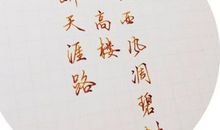 西风凋碧
高楼
天涯路